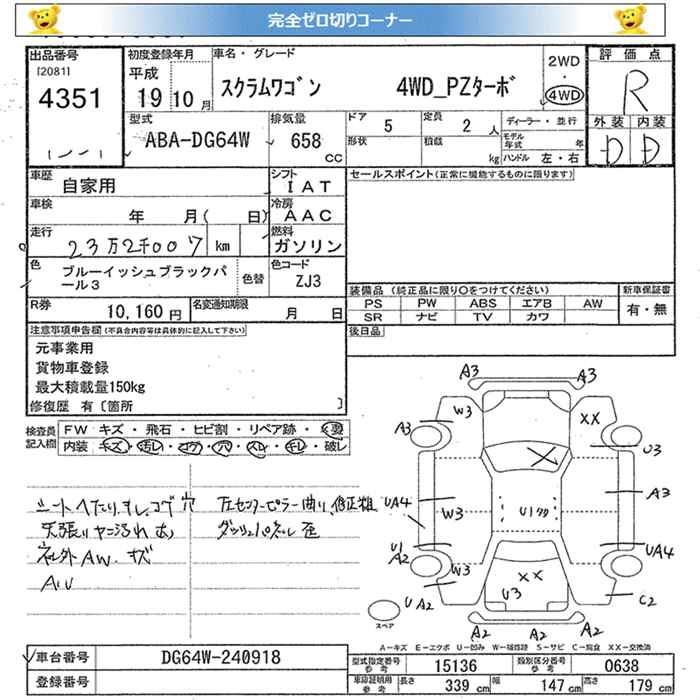 完全ゼロ切りコーナー
出品番号
[2081]
4351
初度登録年月
平成
19年10月
車名・グレード
スクラムワゴン 4WD_PZターボ
2WD
・
4WD
評価点
R
外装 内装
D D
型式
ABA-DG64W
排気量
658
CC
ドア 5
定員 2 人
形状
積載 kg
ディーラー・並行
モデル年式 年
ハンドル 左・右
車歴
自家用
シフト
IAT
車検
年 月( 日)
冷房
AAC
走行
23万2千007 km
燃料
ガソリン
色
ブルーイッシュブラックパール3
色替
色コード
ZJ3
R券 10,160円
名変通知期限 月 日
セールスポイント(正常に機能するものに限ります)
装備品 (純正品に限り○をつけてください)
PS PW ABS エアB AW
SR ナビ TV カワ
新車保証書
有・無
後日品
注意事項申告欄(不具合内容等は具体的に記入して下さい)
元事業用
貨物車登録
最大積載量150kg
修復歴 有〔箇所 〕
検査員記入欄
FW キズ・飛石・ヒビ割・リペア跡・要
内装 キズ・汚し・コゲ・穴・スレ・キレ・破レ
シートへたり、すレ、コゲ穴
天張りヤニ汚れ
社外AW キズ
左センターピラー曲り、修正
ダッシュパネル歪
A3 A3
W3 XX
A3 U3
X
UA4 W3 A3
U1 A2 W3 UA4
XX
U3
UA2 C2
A2 A2 A2
スペア
A-キズ E-エクボ U-凹み W-補修跡 S-サビ C-腐食 XX-交換済
車台番号 DG64W-240918
登録番号
型式指定番号 参考 15136
類別区分番号 参考 0638
車庫証明用 参考 長さ 339 cm 幅 147 cm 高さ 179 cm